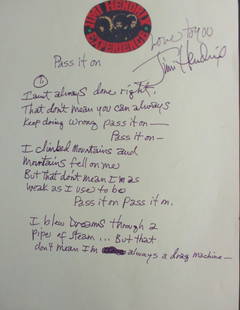 JIMI HENDRIX
EXPERIENCE
Love to you
Jimi Hendrix
Pass it on
1
I aint always done right,
That dont mean you can always
Keep doing wrong pass it on—
Pass it on—
I climbed Mountains and
Mountains fell on me
But that dont mean I'm as
weak as I use to be
Pass it on Pass it on.
I blew Dreams through a
pipe of steam... But that
don't mean I'm always a drag machine—